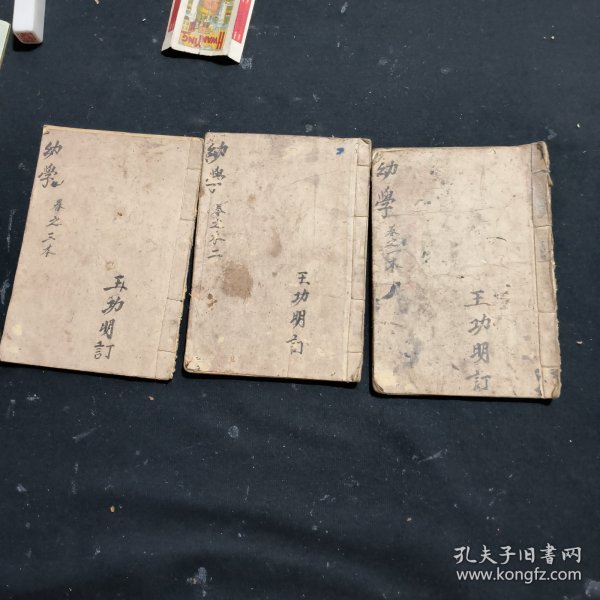 HWA TING
幼學
卷之三本
王功明訂
幼學
卷之本二
王功明訂
幼學
卷之一本
王功明訂
孔夫子旧書网
www.kongfz.com